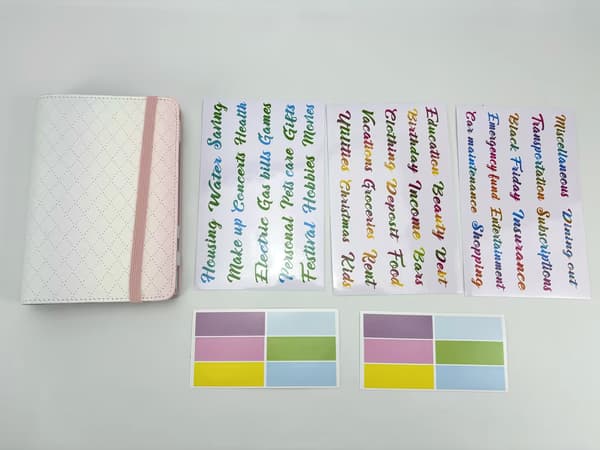 Housing Water Saving
Make up Concerts Health
Electric Gas bills Games
Personal Pets care Gifts
Festival Hobbies Movies
Education Beauty Debt
Birthday Income Bars
Clothing Deposit Food
Vacations Groceries Rent
Utilities Christmas Kids
Miscellaneous Dining out
Transportation Subscriptions
Black Friday Insurance
Emergency fund Entertainment
Car maintenance Shopping